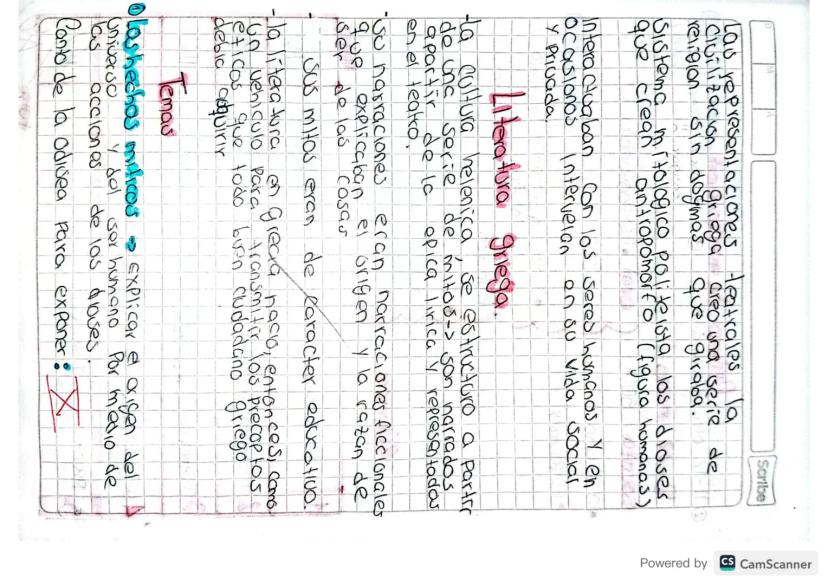 Scribe
Las representaciones teatrales la
civilización griega creo una serie de
religion sin dogmas que giraba.
Sistema mitologico politeista los dioses
que crean antropomorfo (figura humanas)
Interactuaban con los seres humanos y en
ocasiones intervenian en su vida social
y privada.
Literatura griega.
-La cultura helenica, se estructuro a partir
de una serie de mitos -> son narrados
apartir de la epica lirica y representados
en el teatro.
-Su narraciones eran narraciones ficcionales
que explicaban el origen y la razon de
ser de las cosas
- Sus mitos eran de caracter educativo.
-la literatura en Grecia nacio, entonces, como
un vehiculo para transmitir los preceptos
eticos que todo buen ciudadano griego
debia adquirir
Temas
Los hechos miticos => Explicar el origen del
universo y del ser humano por medio de
las acciones de los dioses.
Canto de la odisea para exponer: X
Powered by CS CamScanner